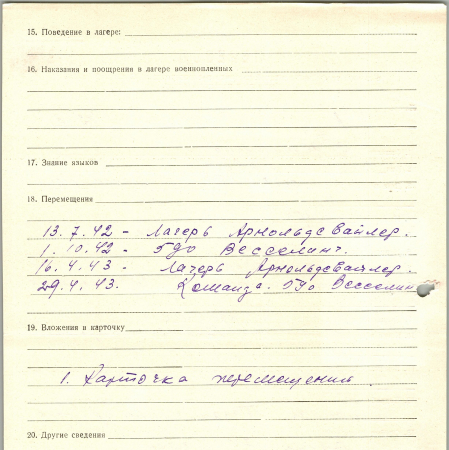 15. Поведение в лагере:
16. Наказания и поощрения в лагере военнопленных
17. Знание языков
18. Перемещения
13. 7. 42 - Лагерь Арнольдсвайлер.
1. 10. 42 - 590 Весселинг.
16. 4. 43 - Лагерь Арнольдсвайлер.
29. 4. 43. Команда 590 Весселин
19. Вложения в карточку
1. Карточка перемещения
20. Другие сведения